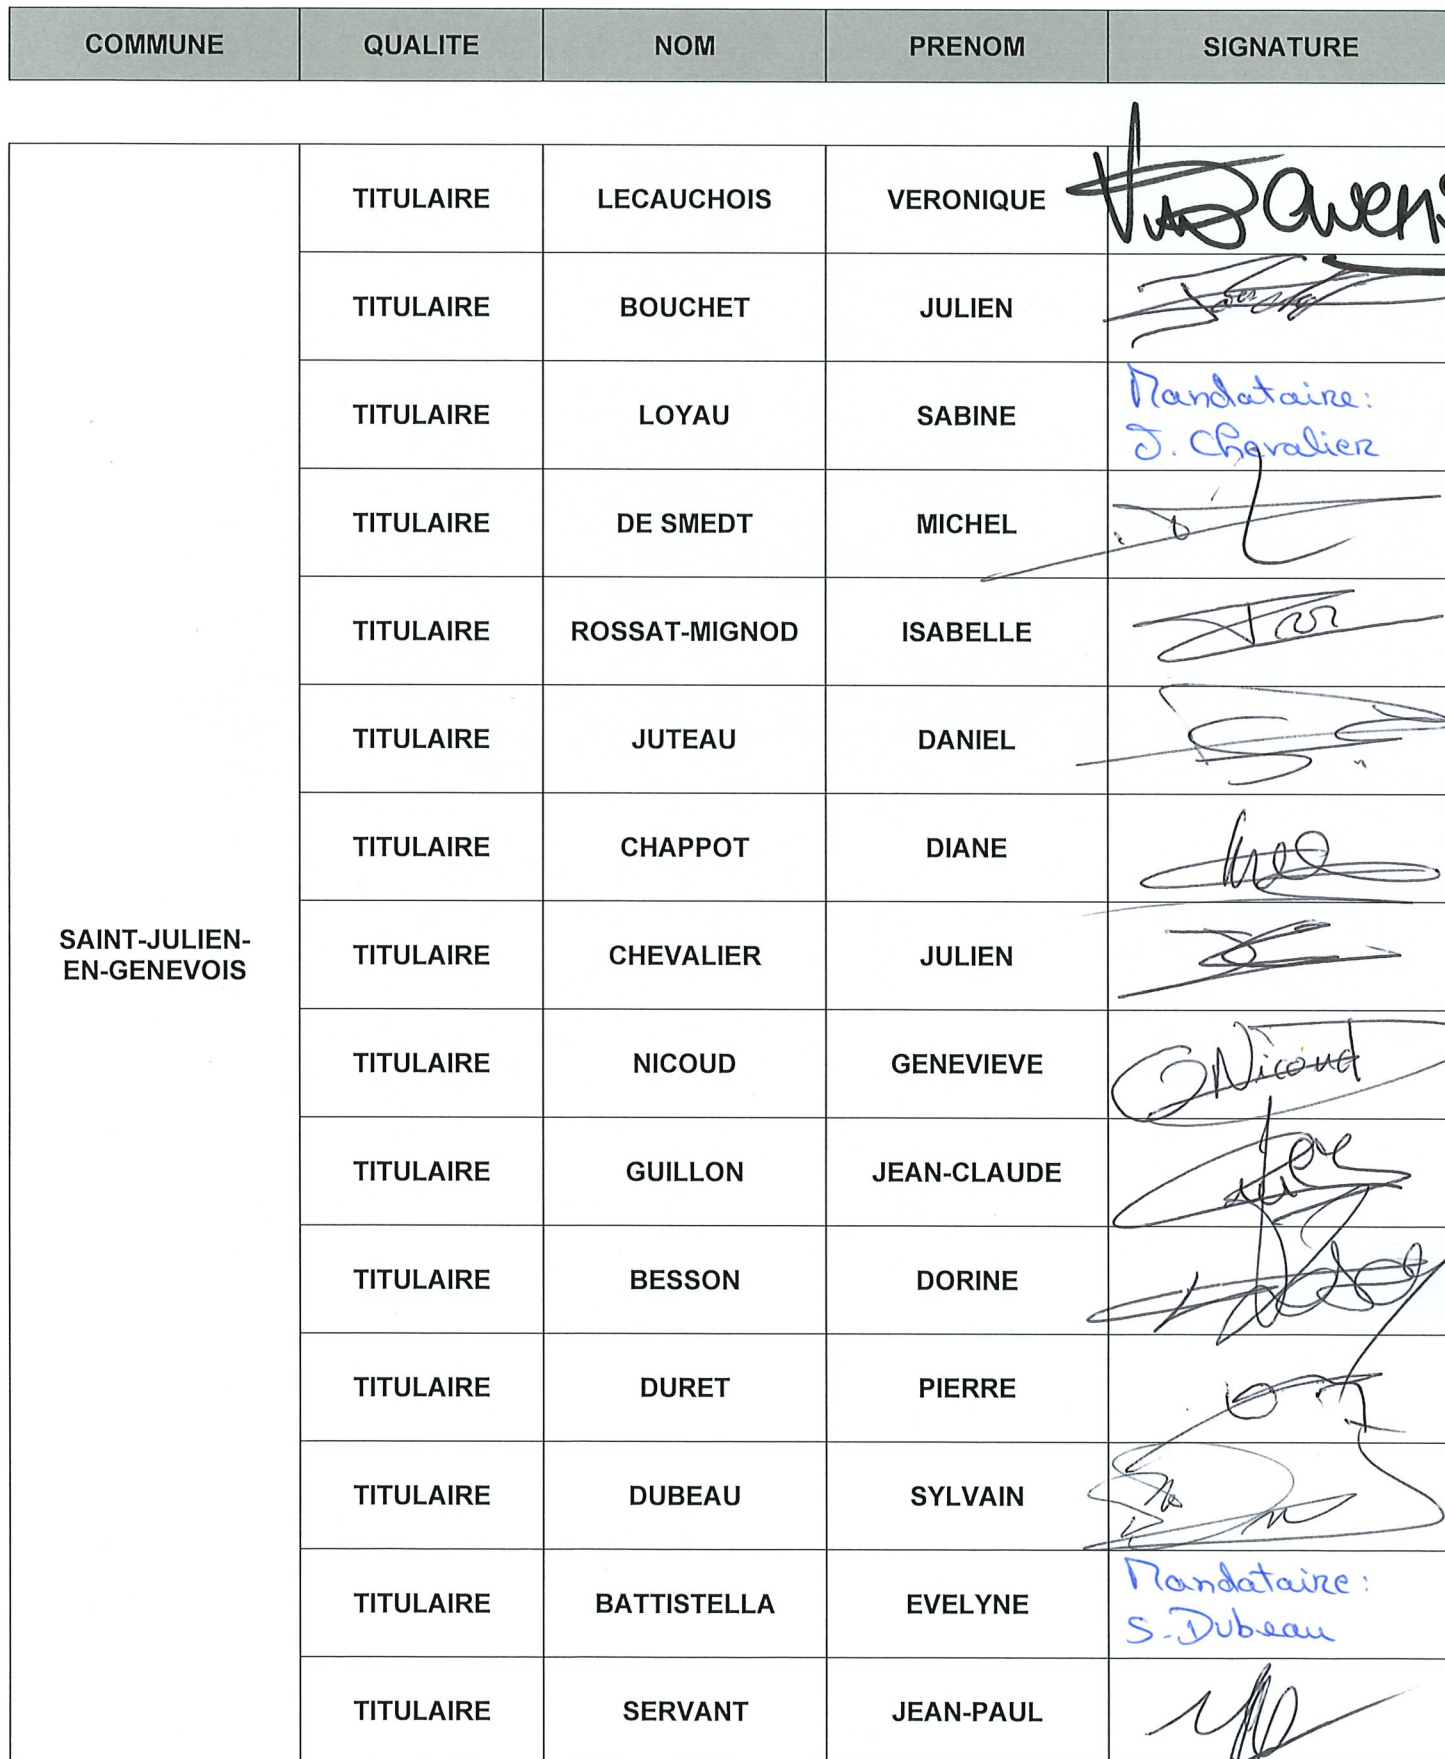 COMMUNE QUALITE NOM PRENOM SIGNATURE
TITULAIRE LECAUCHOIS VERONIQUE
TITULAIRE BOUCHET JULIEN
TITULAIRE LOYAU SABINE Mandataire:
J. Chevalier
TITULAIRE DE SMEDT MICHEL
TITULAIRE ROSSAT-MIGNOD ISABELLE
TITULAIRE JUTEAU DANIEL
TITULAIRE CHAPPOT DIANE
SAINT-JULIEN-
EN-GENEVOIS
TITULAIRE CHEVALIER JULIEN
TITULAIRE NICOUD GENEVIEVE GNicoud
TITULAIRE GUILLON JEAN-CLAUDE
TITULAIRE BESSON DORINE
TITULAIRE DURET PIERRE
TITULAIRE DUBEAU SYLVAIN
TITULAIRE BATTISTELLA EVELYNE Mandataire:
S. Dubeau
TITULAIRE SERVANT JEAN-PAUL